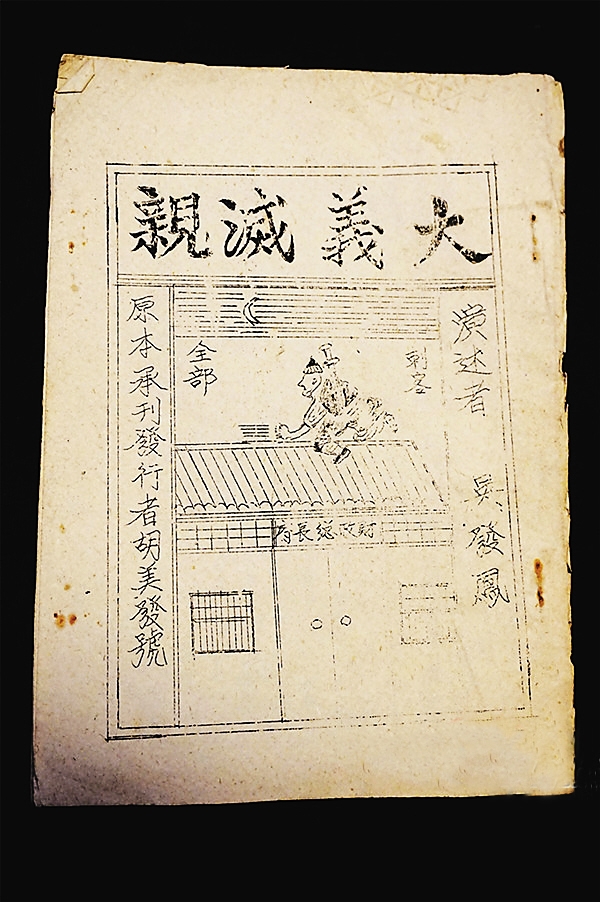 大義滅親
演述者 吳發鳳
刺客
全部
財政總長府
原本承刊發行者胡美發號